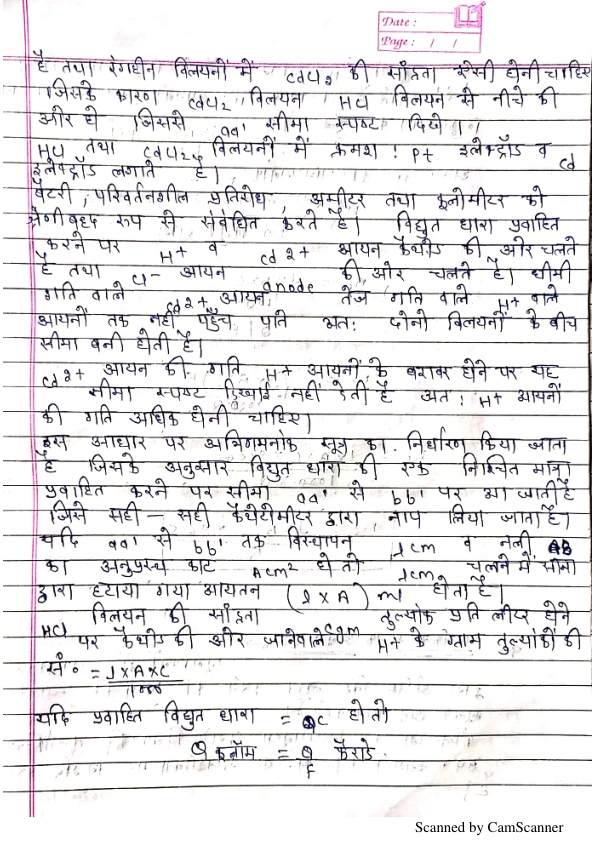 Date :
Page : / /
है तथा रंगहीन विलयनों में CdCl2 की सांद्रता ऐसी होनी चाहिए
जिसके कारण CdCl2 विलयन HCl विलयन से नीचे की
ओर हो जिससे aa' सीमा स्पष्ट दिखे ।
HCl तथा CdCl2 विलयनों में क्रमश: Pt इलेक्ट्रॉड व Cd
इलेक्ट्रॉड लगाते है।
बैटरी, परिवर्तनशील प्रतिरोध, अमीटर तथा कूलोमीटर को
श्रेणीबृध्द रुप से संबंधित करते है। विद्युत धारा प्रवाहित
करने पर H+ व Cd2+ आयन कैथोड की ओर चलते
है तथा Cl- आयन anode की ओर चलते है। धीमी
गति वाले Cd2+ आयन, तेज गति वाले H+ वाले
आयनों तक नहीं पहुँच पाते अत: दोनो विलयनों के बीच
सीमा बनी होती है।
Cd2+ आयन की गति H+ आयनों के बराबर होने पर यह
सीमा स्पष्ट दिखाई नहीं देती है अत: H+ आयनों
की गति अधिक होनी चाहिए।
इस आधार पर अभिगमनांक सूत्र का निर्धारण किया जाता
है जिसके अनुसार विद्युत धारा की एक निश्चित मात्रा
प्रवाहित करने पर सीमा aa' से bb' पर आ जाती है
जिसे सही - सही कैथेटोमीटर द्वारा नाप लिया जाता है।
यदि aa' से bb' तक विस्थापन l cm व नली AB
का अनुप्रस्थ काट A cm2 हो तो l cm चलने में सीमा
द्वारा हटाया गया आयतन (l x A) ml होता है।
HCl विलयन की सांद्रता C gm तुल्यांक प्रति लीटर होने
पर कैथोड की ओर जानेवाले H+ के ग्राम तुल्यांकों की
सं० = l x A x C / 1000
यदि प्रवाहित विद्युत धारा = QC हो तो
Q कूलॉम = Q/F फैराडे
Scanned by CamScanner